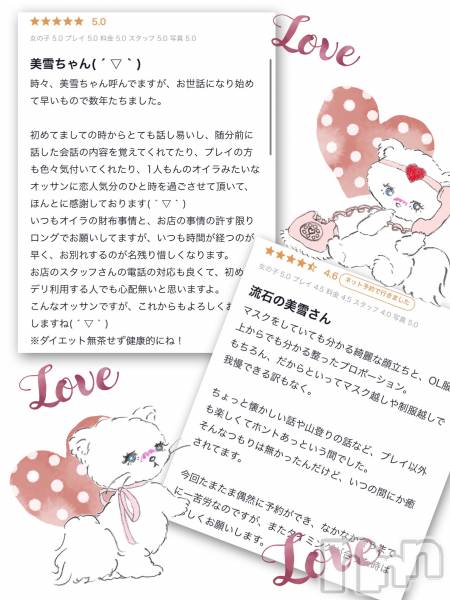 Love
★★★★★ 5.0
女の子 5.0 プレイ 5.0 料金 5.0 スタッフ 5.0 写真 5.0
美雪ちゃん( ´ ▽ ` )
時々、美雪ちゃん呼んでますが、お世話になり始め
て早いもので数年たちました。
初めてましての時からとても話し易いし、随分前に
話した会話の内容を覚えてくれてたり、プレイの方
も色々気付いてくれたり、1人もんのオイラみたいな
オッサンに恋人気分のひと時を過ごさせて頂いて、
ほんとに感謝しております( ´▽` )
いつもオイラの財布事情と、お店の事情の許す限り
ロングでお願いしてますが、いつも時間が経つのが
早く、お別れするのが名残り惜しくなります。
お店のスタッフさんの電話の対応も良くて、初め
デリ利用する人でも心配無いと思いますよ。
こんなオッサンですが、これからもよろしくお
しますね( ´▽` )
※ダイエット無茶せず健康的にね！
4.6 ネット予約で行きました
女の子 5.0 プレイ 4.5 料金 4.5 スタッフ 4.0 写真 5.0
流石の美雪さん
マスクをしていても分かる綺麗な顔立ちと、OL服
上からでも分かる整ったプロポーション。
もちろん、だからといってマスク越しや制服越しで
我慢できる訳もなく。
ちょっと懐かしい話や山登りの話など、プレイ以外
も楽しくてホントあっという間でした。
そんなつもりは無かったんだけど、いつの間にか癒
されてます。
今回たまたま偶然に予約ができ、なかなか
に一苦労なのですが、また
しくお願いします。
Love
Love